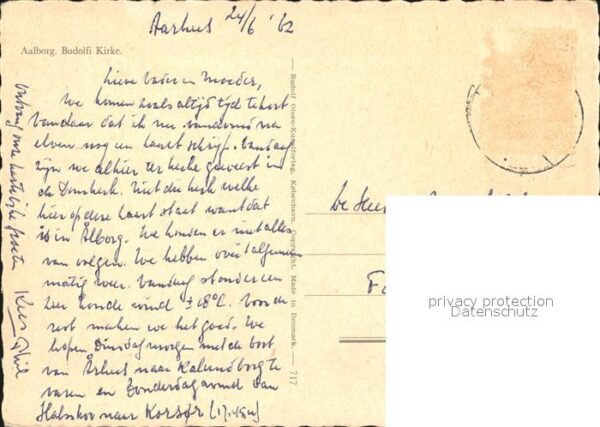 Aarhus 24/6 '62
Aalborg. Budolfi Kirke.
Lieve Vader en Moeder,
We komen zoals altijd tijd te kort
Vandaar dat ik nu vanavond na
elven nog een kaart schrijf. Vandaag
zijn we alhier ter kerke geweest in
de Domkerk. Niet de kerk welke
hier op deze kaart staat want dat
is in Ålborg. We konden er niet alles
van volgen. We hebben over 't algemeen
matig weer. Vandaag stond er een
zeer koude wind ± 18°C. Voor de
rest maken we het goed. We
hopen Dinsdagmorgen met de boot
van Århus naar Kalundborg te
varen en Donderdagavond van
Halsskov naar Korsør (17.45u)
Ontvang onze hartelijke groeten
Rudolf Olsen-Kunstforlag. København. Copyright. Made in Denmark. — 717
De Heer
Fa
privacy protection
Datenschutz